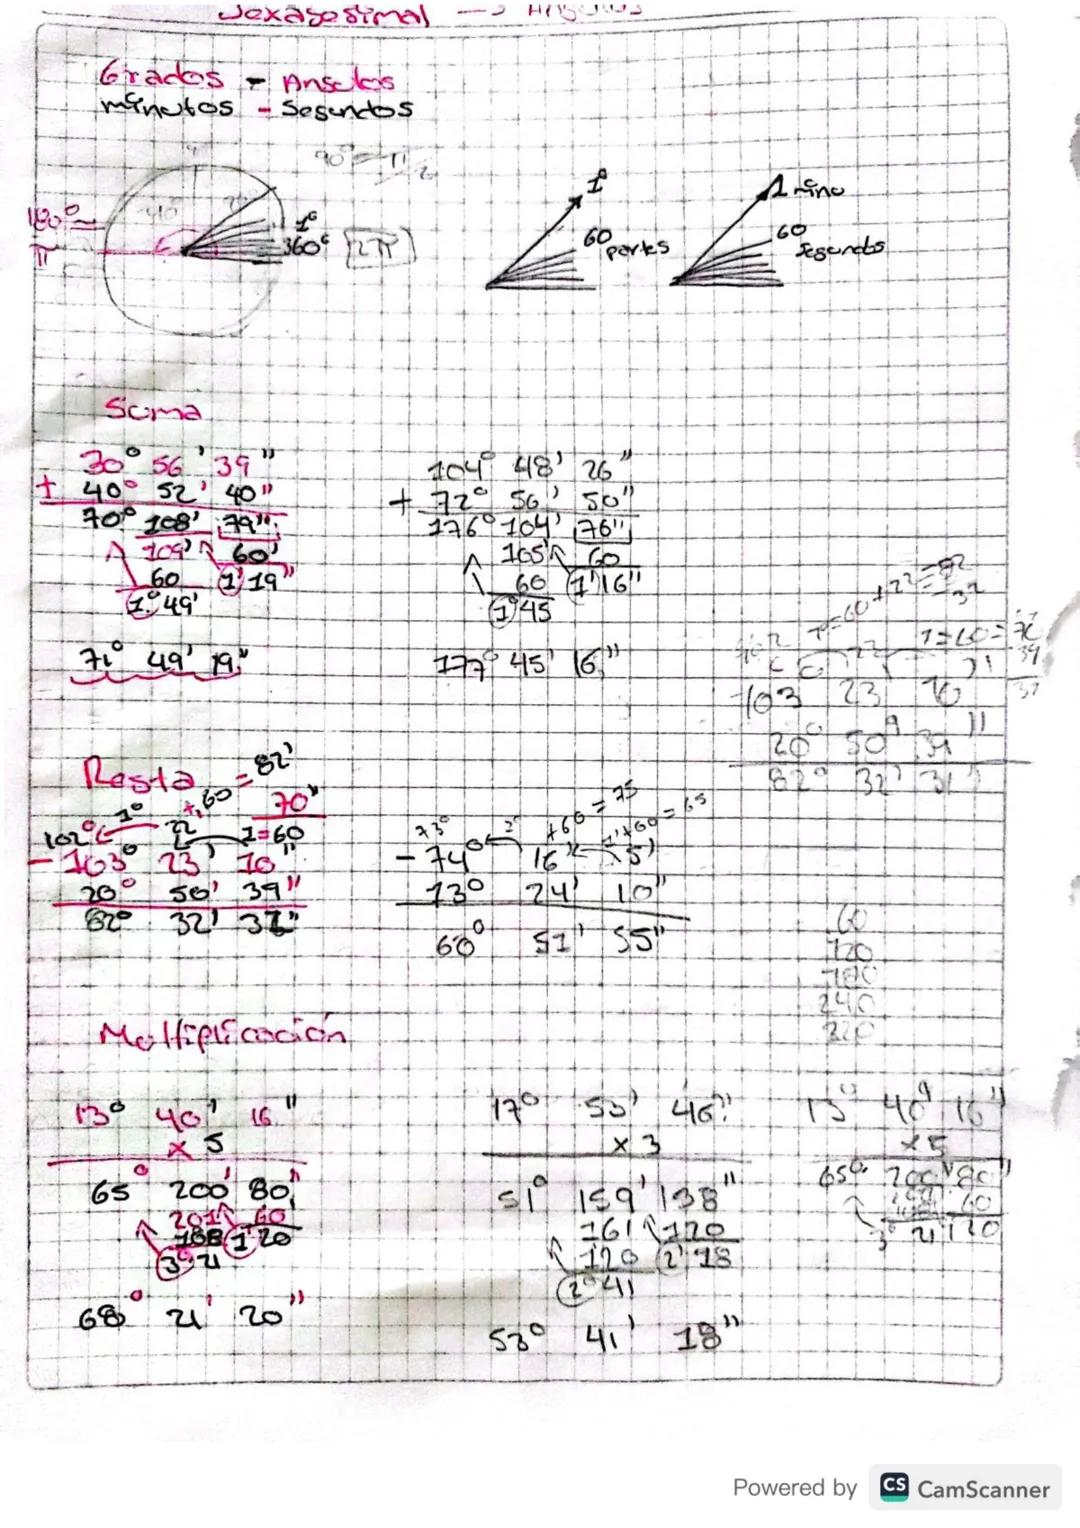 Sexagesimal → Angulos
Grados - Angulos
minutos - Segundos
90° = π/2
180° =
π
1°
360° 2π
1°
60 partes
1 minu
60 segundos
Suma
30° 56' 39"
+ 40° 52' 40"
70° 108' 79"
109' 60'
60 1' 19"
1° 49'
71° 49' 19"
104° 48' 26"
+ 72° 56' 50"
176° 104' 76"
105' 60
60 1' 16"
1° 45
177° 45' 16"
103 23 70
20° 50' 39"
82° 32' 31"
Resta
+60 = 82'
70"
102° 1° 22 1=60
- 103° 23' 10"
20° 50' 39"
82° 32' 31"
73° +60 = 75 1'+60 = 65
- 74° 16' 5'
13° 24' 10"
60° 51' 55"
60
120
180
240
320
Moltiplicación
13° 40' 16"
x 5
65° 200' 80"
201 60
180 1' 20
3° 21
68° 21' 20"
17° 53' 46"
x 3
51° 159' 138"
161 120
120 2' 18
2° 41
53° 41' 18"
13° 40' 16"
x 5
65° 200' 80"
60
3° 21 20